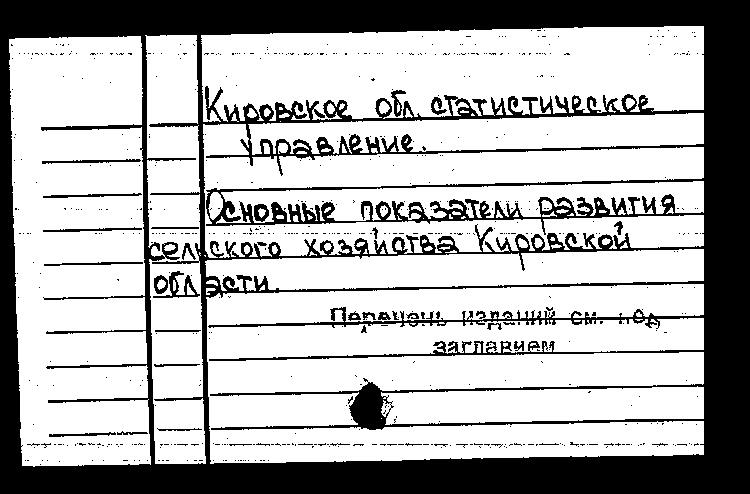 Кировское обл. статистическое
управление.
Основные показатели развития
сельского хозяйства Кировской
области.
Перечень изданий см. под
заглавием